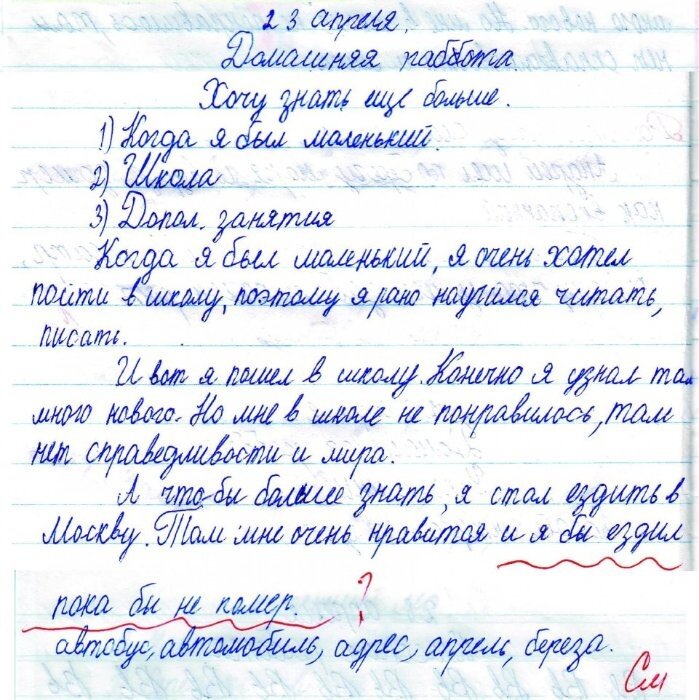 23 апреля.
Домашняя работа.
Хочу знать еще больше.
1) Когда я был маленький.
2) Школа
3) Допол. занятия
Когда я был маленький, я очень хотел
пойти в школу, поэтому я рано научился читать,
писать.
И вот я пошел в школу. Конечно я узнал там
много нового. Но мне в школе не понравилось, там
нет справедливости и мира.
А что бы больше знать, я стал ездить в
Москву. Там мне очень нравится и я бы ездил
пока бы не помер. ?
автобус, автомобиль, адрес, апрель, береза.
См